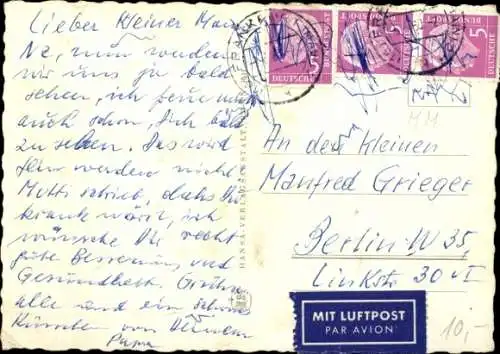 Lieber kleiner
Na, nun werden
wir uns ja bald
sehen, ich freue mich
auch schon, Dich bald
zu sehen. Das wird
fein werden nicht
Mutti schrieb, dass Du
krank wärst, ich
wünsche Dir recht
gute Besserung und
Gesundheit. Grüße
alle und ein schönes
Küsschen von Deinem
Papa
HANSA-VERLAGSANSTALT
5
DEUTSCHE
BUNDESPOST
5
DEUTSCHE
BUNDESPOST
5
An den kleinen
Manfred Grieger
Berlin W 35,
Linkstr 30 II
MIT LUFTPOST
PAR AVION
10,-